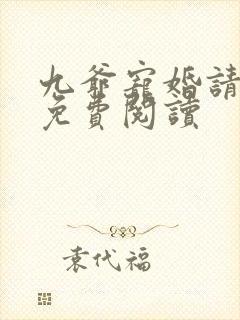 九爺寵婚請
免費閱讀
袁代福